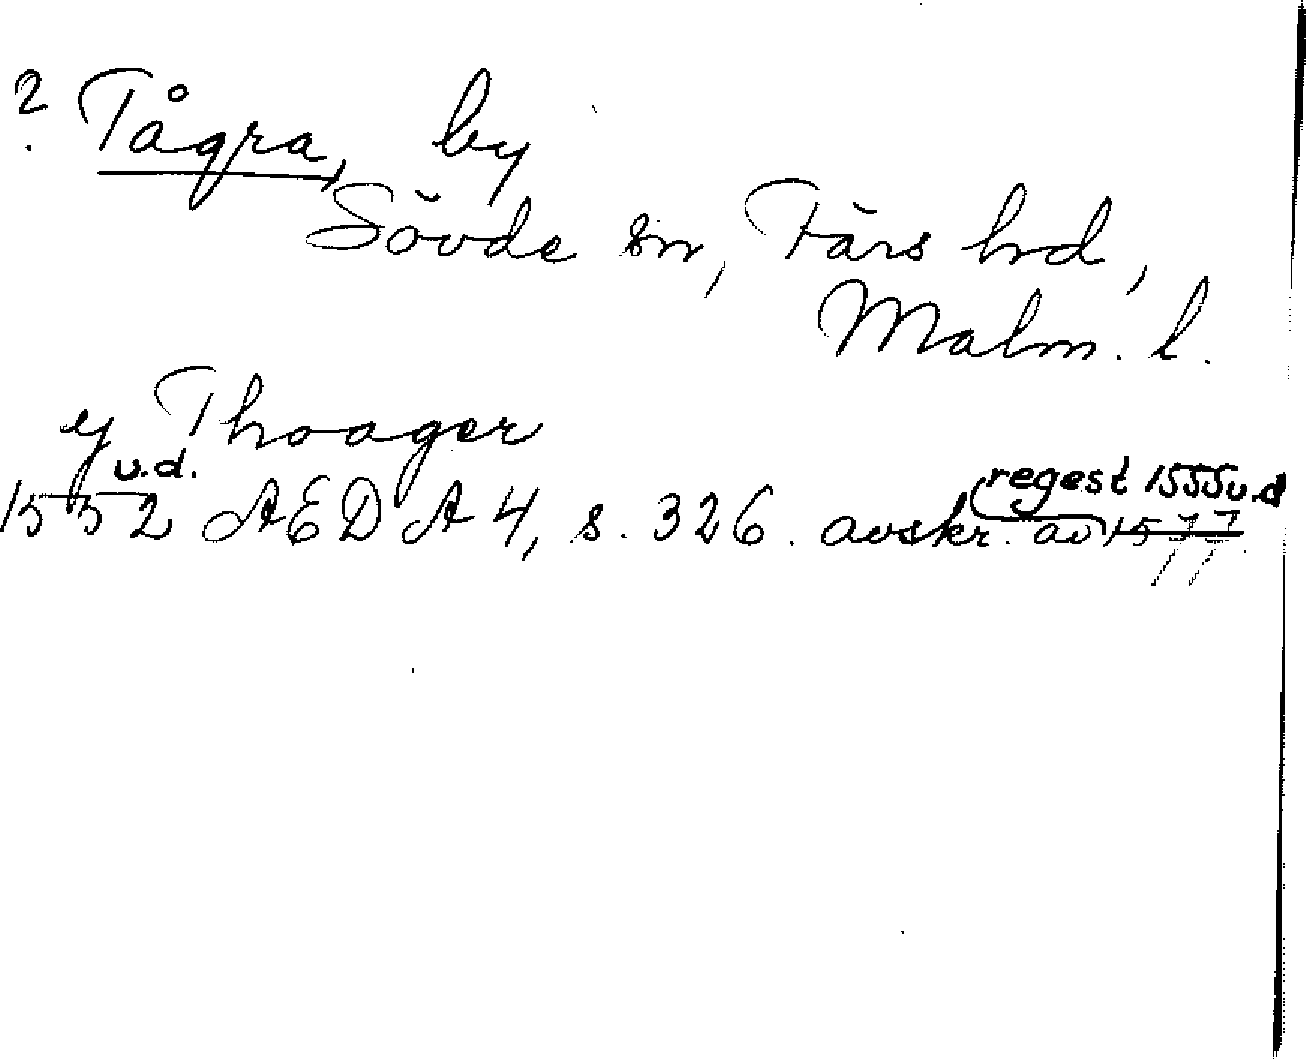 ? Tågra, by
Sövde sn, Färs hd,
Malm. l.
y Thoager
u.d.
regest 1555 u.d
1552 AEDA 4, s. 326. avskr. av 1577